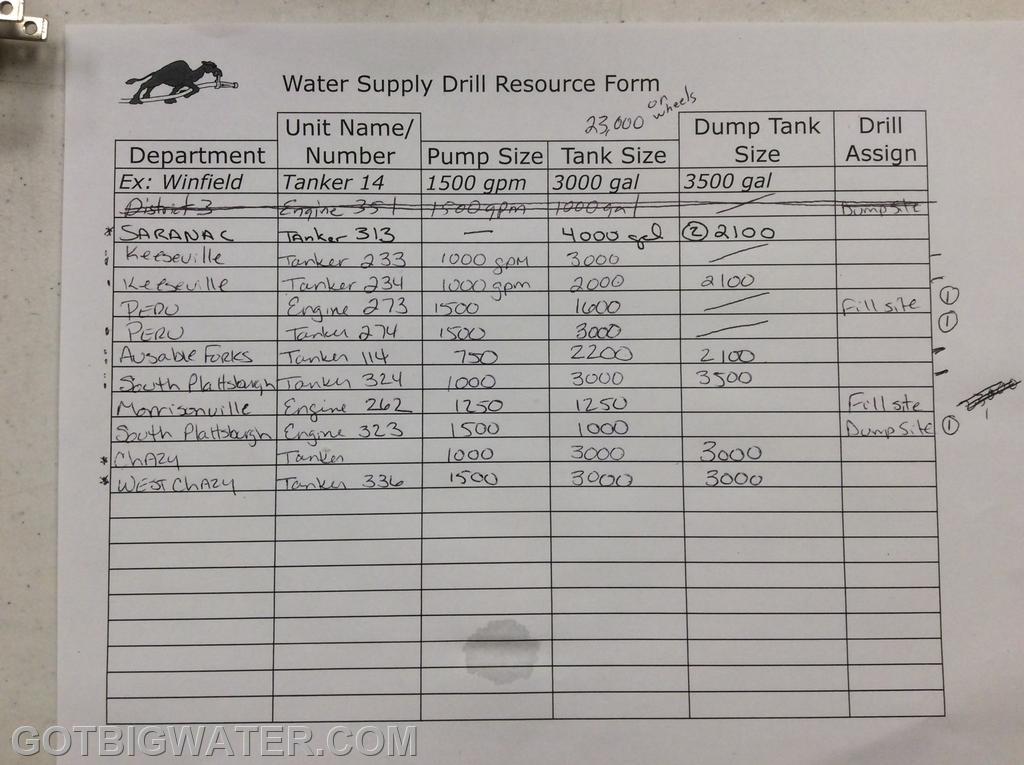 Water Supply Drill Resource Form
23,000 on wheels
Department Unit Name/ Number Pump Size Tank Size Dump Tank Size Drill Assign
Ex: Winfield Tanker 14 1500 gpm 3000 gal 3500 gal
District 3 Engine 351 1500 gpm 1000 gal / Dump Site
* SARANAC Tanker 313 — 4000 gal ② 2100
Keeseville Tanker 233 1000 GPM 3000 /
Keeseville Tanker 234 1000 gpm 2000 2100
PERU Engine 273 1500 1600 / Fill site ①
PERU Tanker 274 1500 3000 / ①
Ausable Forks Tanker 114 750 2200 2100
South Plattsburgh Tanker 324 1000 3000 3500
Morrisonville Engine 262 1250 1250 Fill site
South Plattsburgh Engine 323 1500 1000 Dump Site ①
* ChAzy Tanker 1000 3000 3000
* WEST ChAzy Tanker 336 1500 3000 3000
GOTBIGWATER.COM